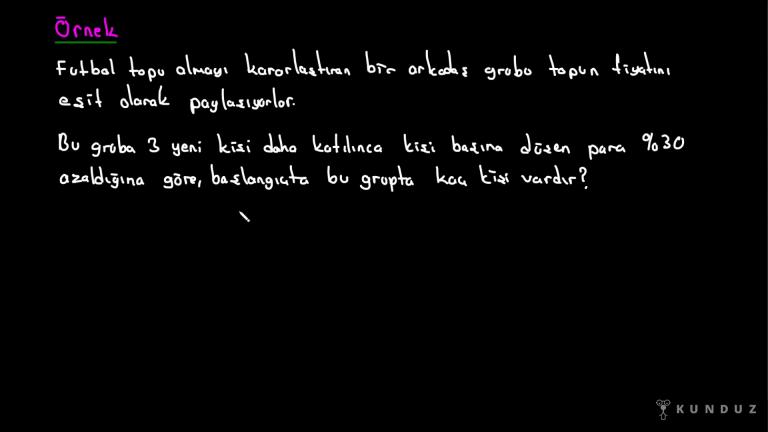 Örnek
Futbol topu almayı kararlaştıran bir arkadaş grubu topun fiyatını
eşit olarak paylaşıyorlar.
Bu gruba 3 yeni kişi daha katılınca kişi başına düşen para %30
azaldığına göre, başlangıçta bu grupta kaç kişi vardır?
KUNDUZ